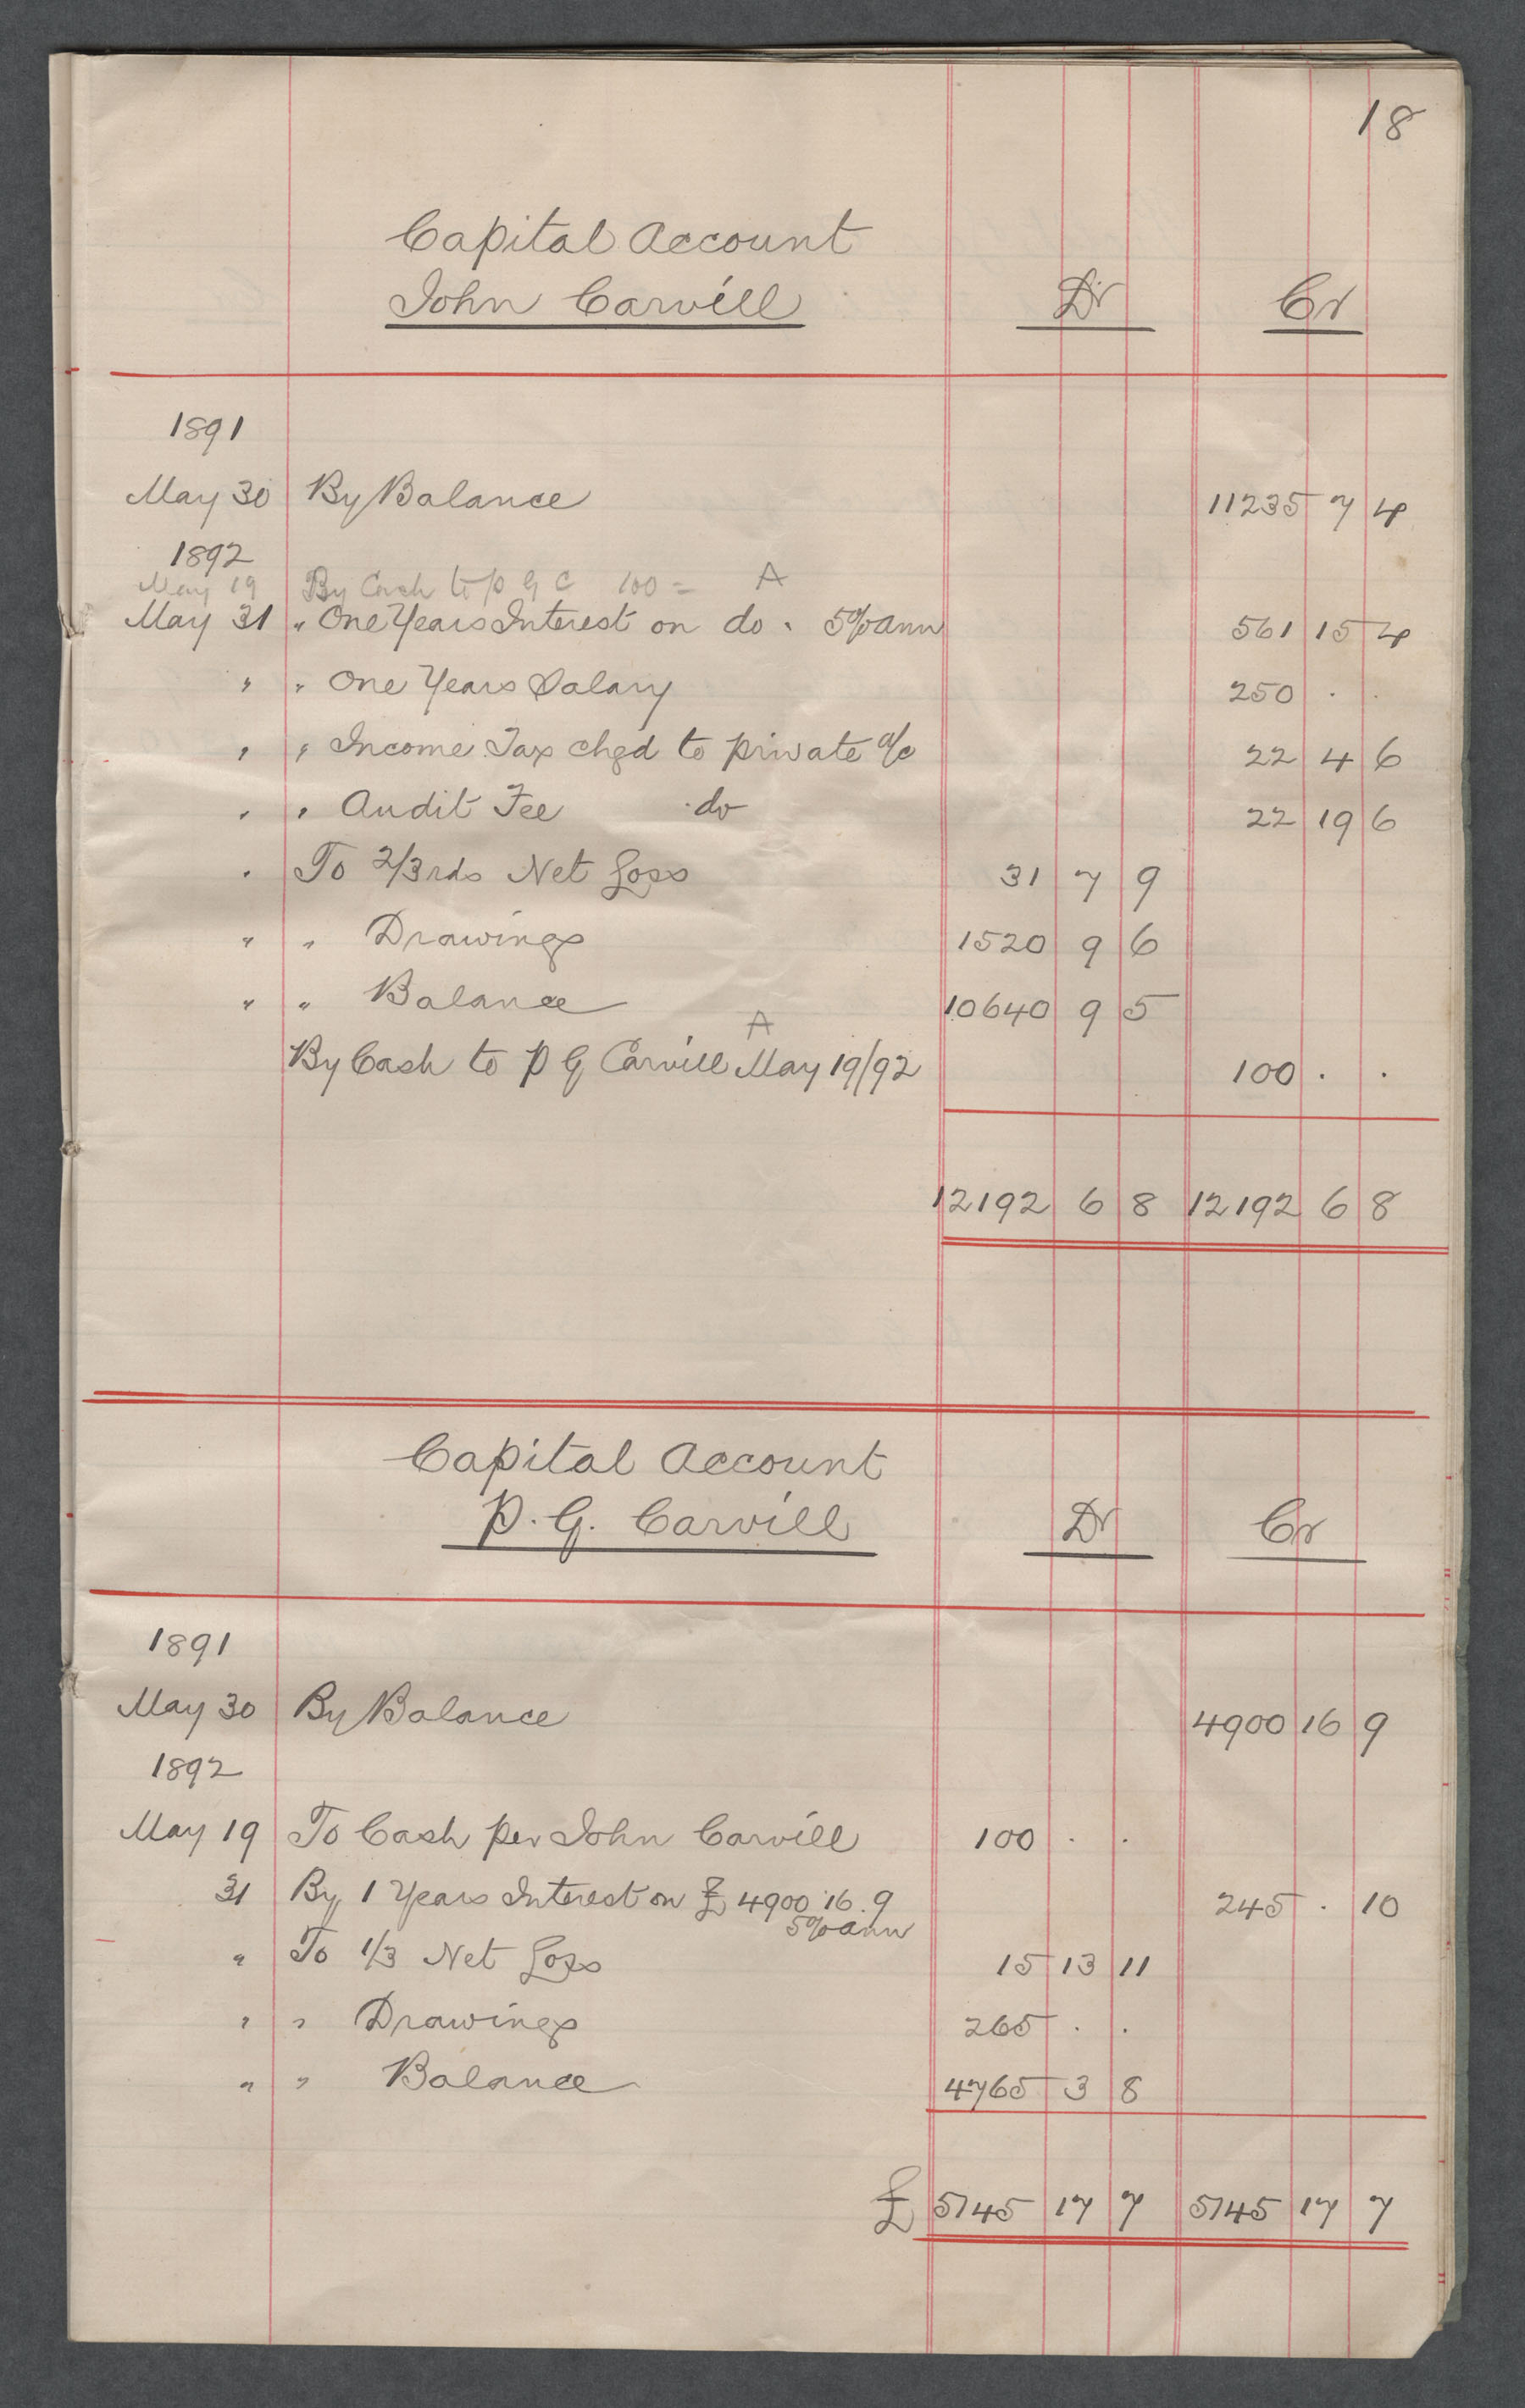 18
Capital Account
John Carvill Dr Cr
1891
May 30 By Balance 11235 7 4
1892
May 19 By Cash to P G C 100 = A
May 31 " One Years Interest on do. 5% ann 561 15 4
" " One Years Salary 250 . .
" " Income Tax chgd to private a/c 22 4 6
" " Audit Fee do 22 19 6
" To 2/3rds Net Loss 31 7 9
" " Drawings 1520 9 6
" " Balance 10640 9 5
A
By Cash to P G Carvill May 19/92 100 . .
12192 6 8 12192 6 8
Capital Account
P. G. Carvill Dr Cr
1891
May 30 By Balance 4900 16 9
1892
May 19 To Cash per John Carvill 100 . .
31 By 1 Years Interest on £ 4900.16.9 245 . 10
5% ann
" To 1/3 Net Loss 15 13 11
" " Drawings 265 . .
" " Balance 4765 3 8
£ 5145 17 7 5145 17 7